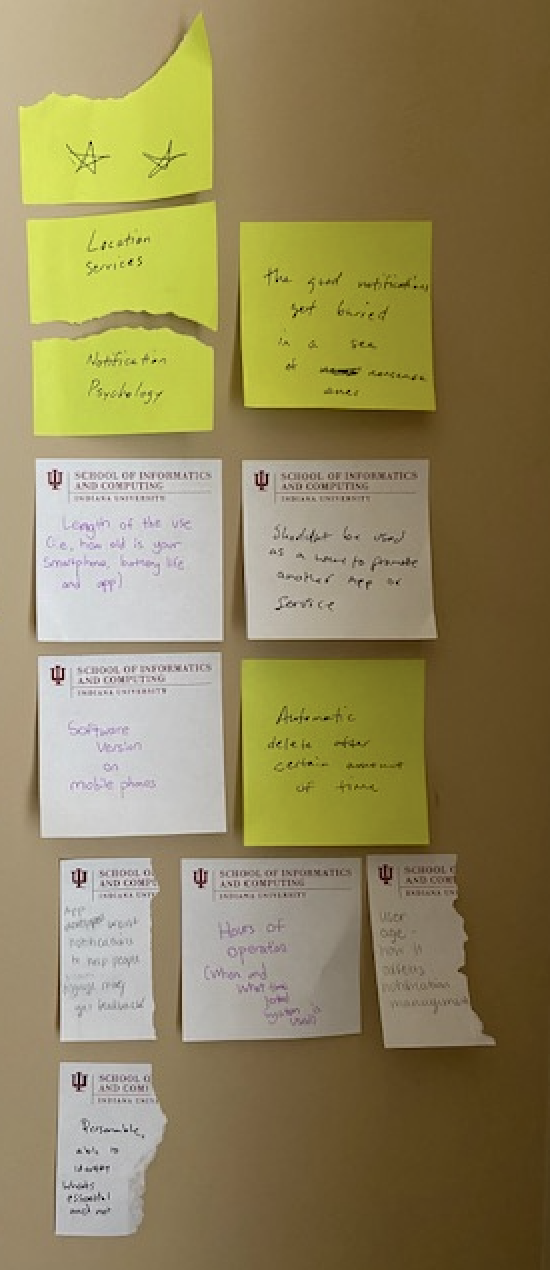 Location
Services
Notification
Psychology
the good notifications
get buried
in a sea
of nonsense
ones
SCHOOL OF INFORMATICS
AND COMPUTING
INDIANA UNIVERSITY
Length of the use
(i.e, how old is your
Smartphone, battery life
and app)
SCHOOL OF INFORMATICS
AND COMPUTING
INDIANA UNIVERSITY
Shouldnt be used
as a way to promote
another app or
Service
SCHOOL OF INFORMATICS
AND COMPUTING
INDIANA UNIVERSITY
Software
Version
on
mobile phones
Automatic
delete after
certain amount
of time
SCHOOL O
AND COMP
INDIANA UNIV
App
want
notifications
to help people
get feedback
SCHOOL OF INFORMATICS
AND COMPUTING
INDIANA UNIVERSITY
Hours of
operation
(When and
what time
system is
used)
SCHOOL O
AND COM
INDIANA UN
User
age -
how it
affects
notification
management
SCHOOL O
AND COM
INDIANA UNIV
Personable,
able to
identify
Whats
essential
and not